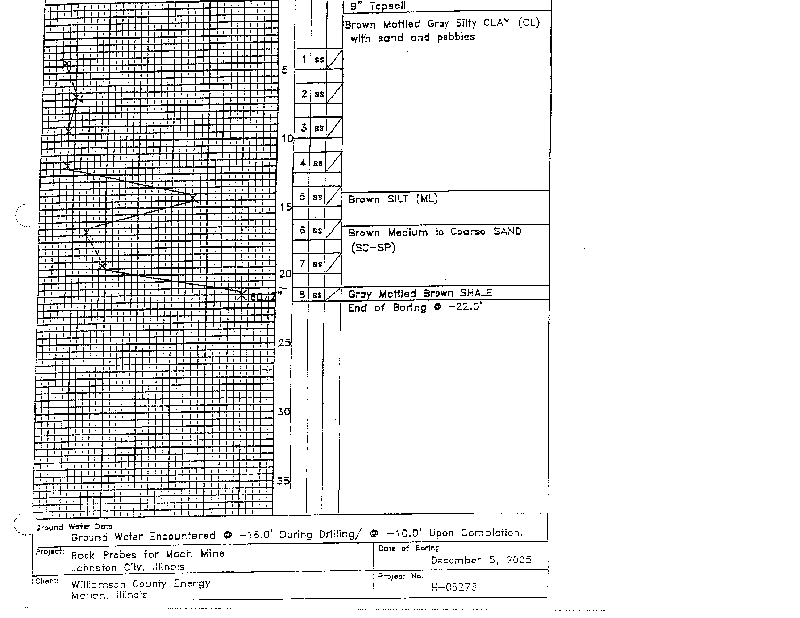 9" Topsoil
Brown Mottled Gray Silty CLAY (CL)
with sand and pebbles
1 ss
5
2 ss
3 ss
10
4 ss
5 ss
Brown SILT (ML)
15
6 ss
Brown Medium to Coarse SAND
(SC-SP)
7 ss
20
8 ss
Gray Mottled Brown SHALE
End of Boring @ -22.0'
25
30
35
Ground Water Data
Ground Water Encountered @ -16.0' During Drilling/ @ -10.0' Upon Completion.
Project: Rock Probes for Mach Mine
Johnston City, Illinois
Date of Boring
December 5, 2005
Client: Williamson County Energy
Marion, Illinois
Project No.